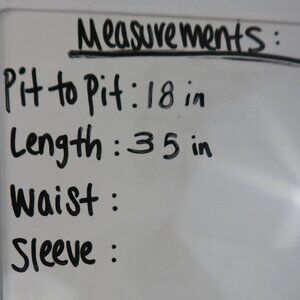 Measurements:
Pit to Pit: 18 in
Length: 35 in
Waist:
Sleeve: